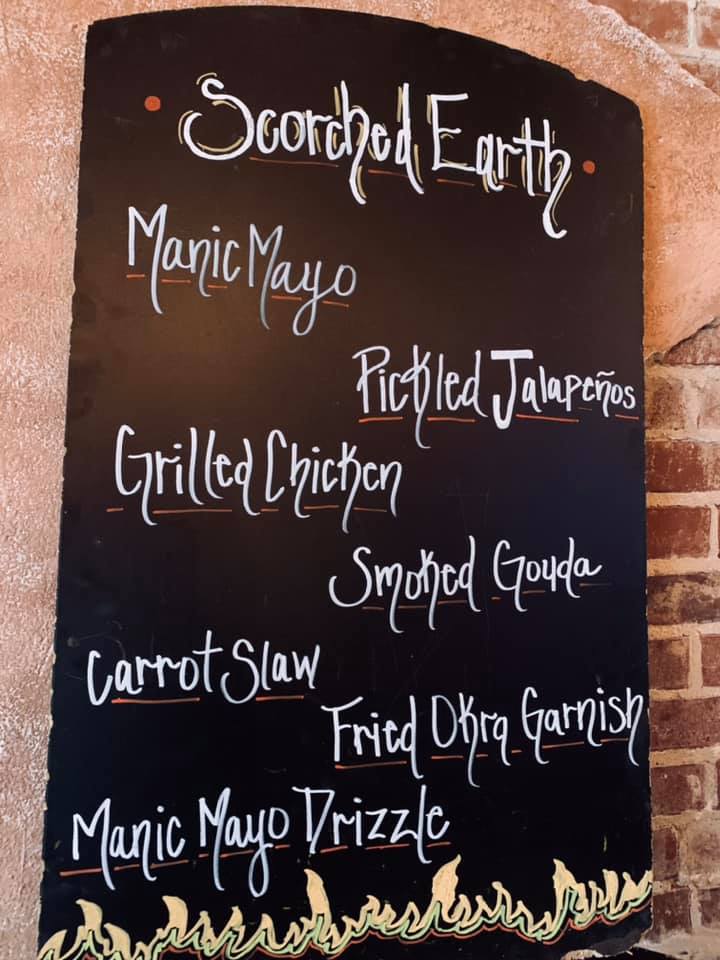 Scorched Earth
Manic Mayo
Pickled Jalapeños
Grilled Chicken
Smoked Gouda
Carrot Slaw
Fried Okra Garnish
Manic Mayo Drizzle